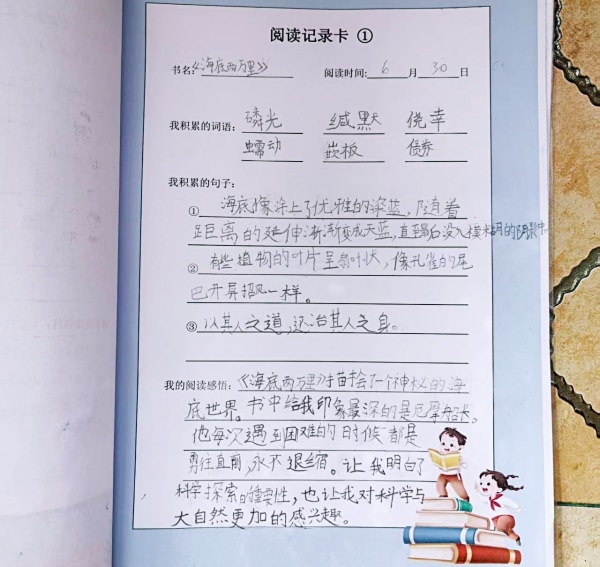 阅读记录卡 ①
书名:《海底两万里》 阅读时间: 6 月 30 日
我积累的词语: 磷光 缄默 侥幸
蠕动 嵌板 债券
我积累的句子:
① 海底像涂上了优雅的深蓝,随着
距离的延伸渐渐变成天蓝,直至最后没入模水的阴影中
② 有些植物的叶片呈扇叶状,像孔雀的尾
巴开屏招风一样。
③ 以其人之道,还治其人之身。
我的阅读感悟:《海底两万里》描绘了一个神秘的海
底世界。书中给我印象最深的是尼摩船长。
他每次遇到困难的时候都是
勇往直前,永不退缩。让我明白了
科学探索的重要性,也让我对科学与
大自然更加的感兴趣。